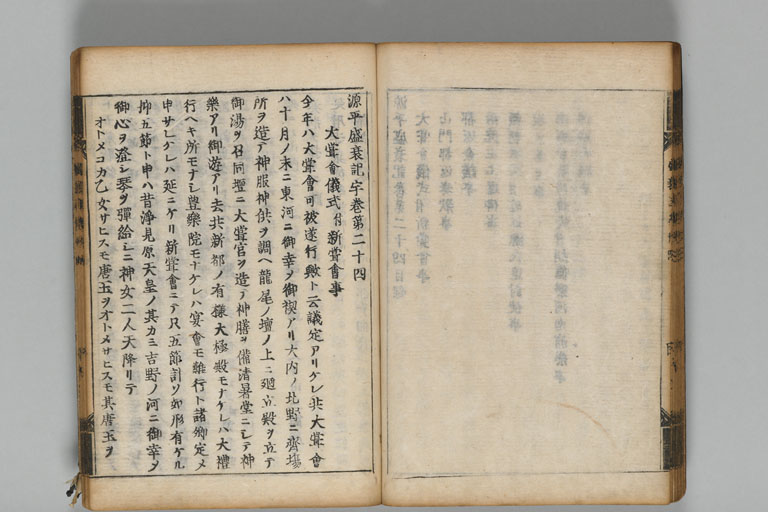 源平盛衰記宇巻第二十四
大甞會儀式付新甞會事
今年ハ大甞會可被遂行歟ト云議定アリケレ共大甞會
ハ十月ノ末ニ東河ニ御幸ヲ御禊アリ大内ノ北野ニ齊塲
所ヲ造テ神服神供ヲ調ヘ龍尾ノ壇ノ上ニ廻立殿ヲ立テ
御湯ヲ召同壇ニ大甞宮ヲ造テ神膳ヲ備清暑堂ニシテ神
樂アリ御遊アリ去共新都ノ有樣大極殿モナケレハ大禮
行ヘキ所モナシ豊樂院モナケレハ宴會モ難行ト諸卿定メ
申サレケレハ延ニケリ新甞會ニテ只五節計ソ如形有ケル
抑五節ト申ハ昔淨見原天皇ノ其カミ吉野ノ河ニ御幸メ
御心ヲ澄シ琴ヲ彈給シニ神女二人天降リテ
オトメコカ乙女サヒスモ唐玉ヲオトメサヒスモ其唐玉ヲ